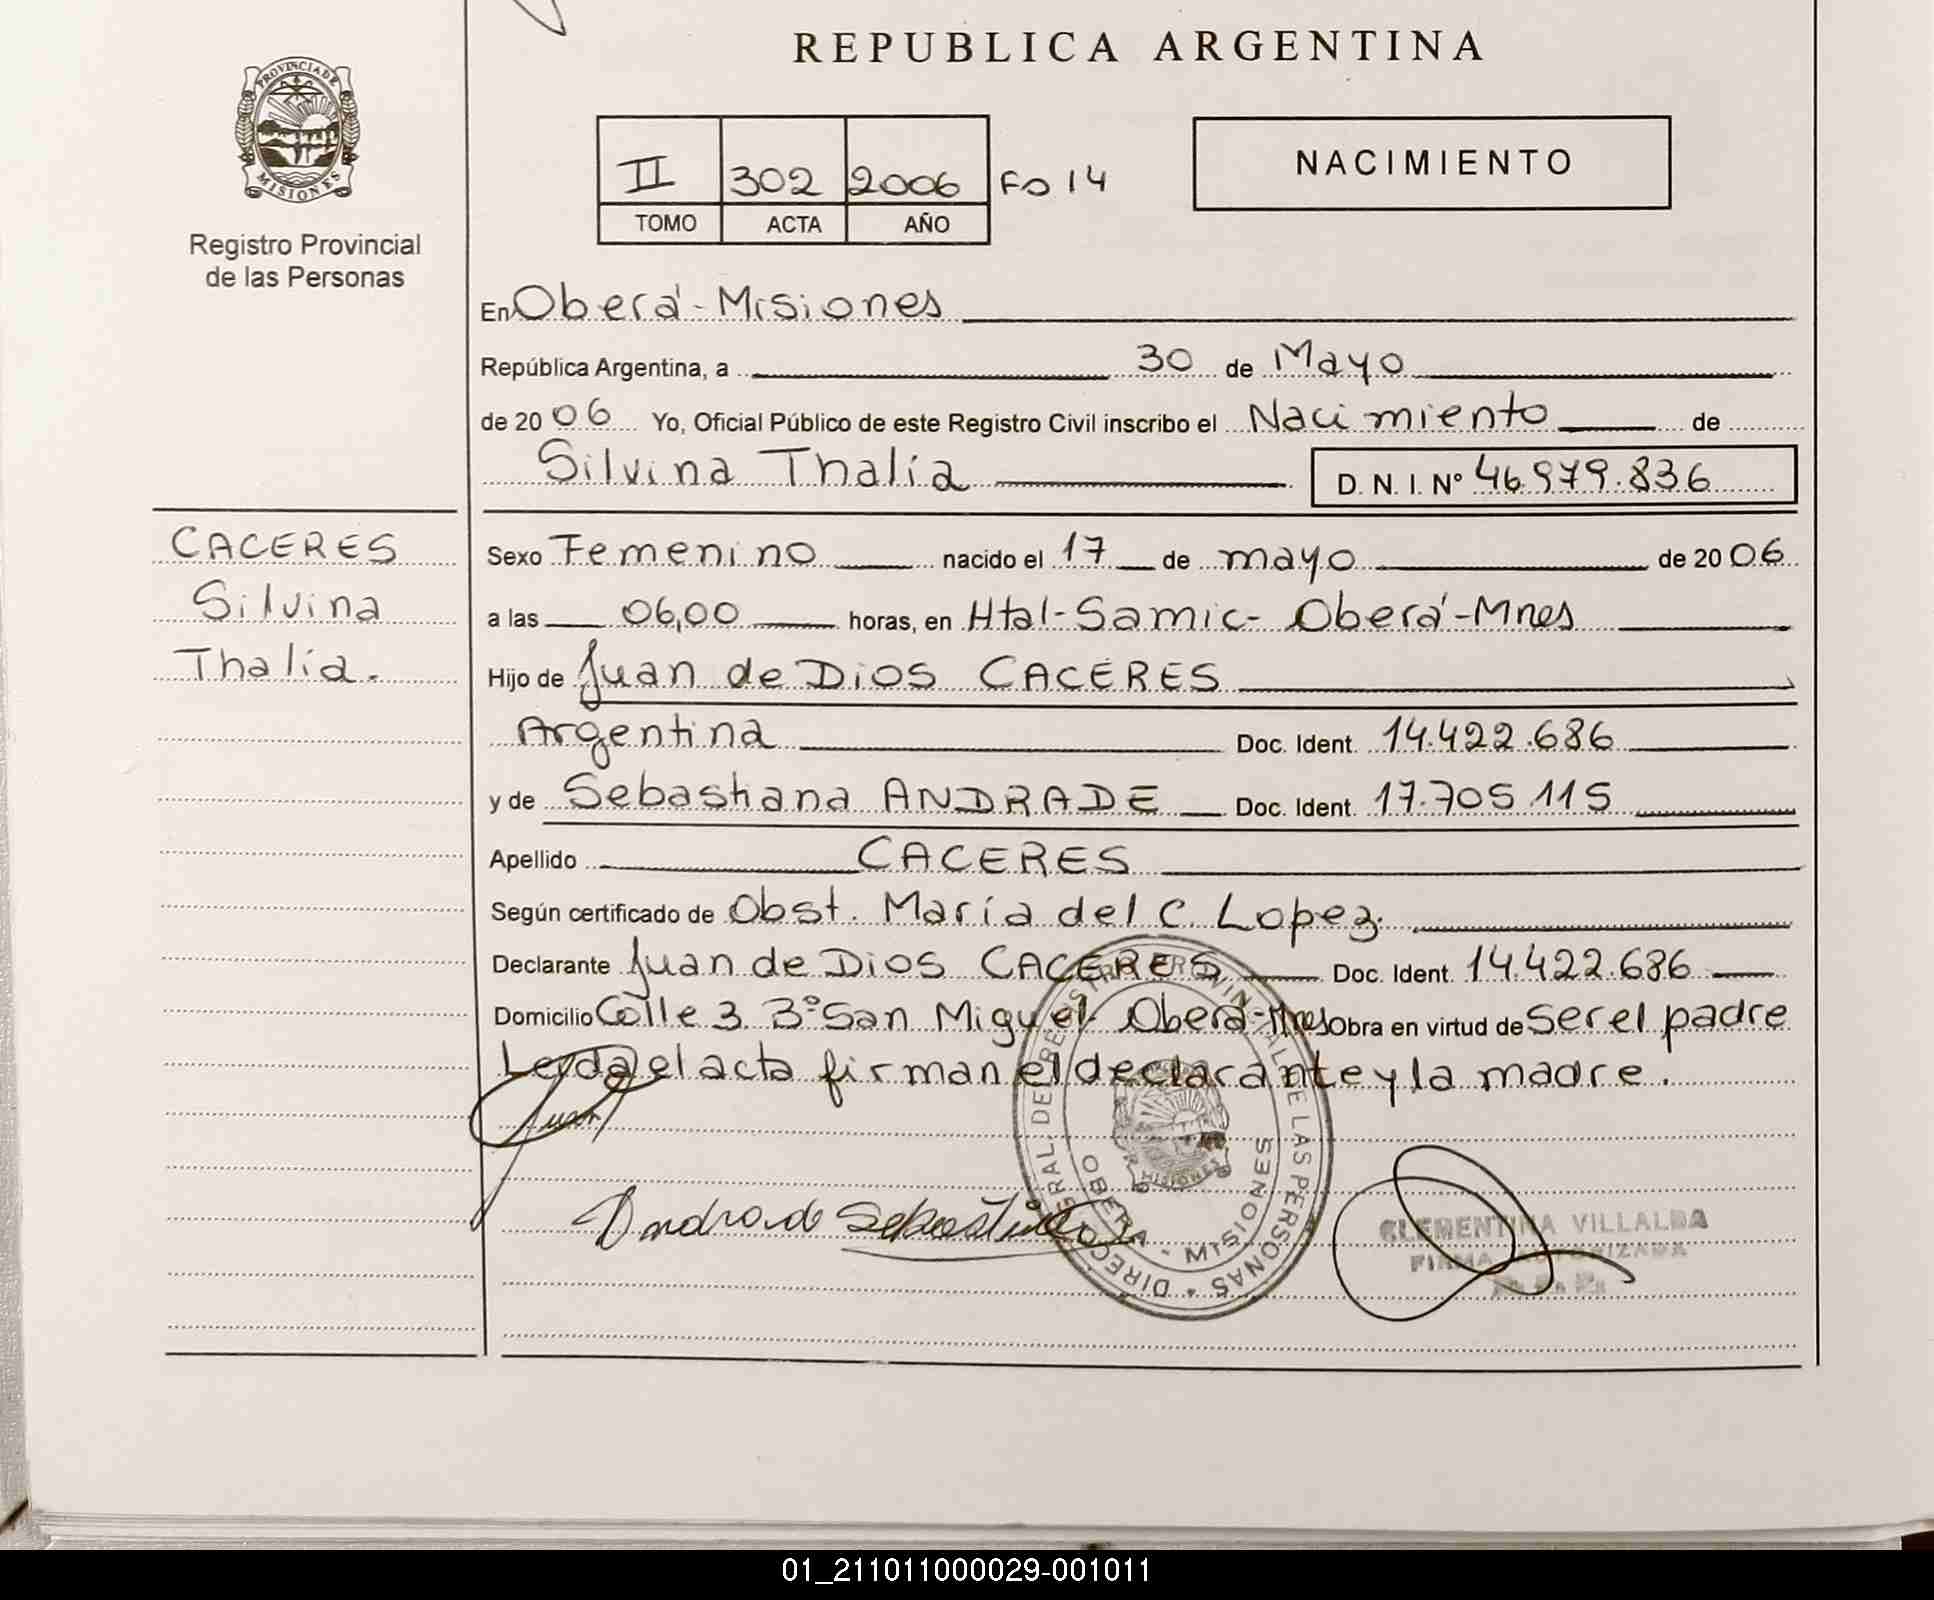 REPUBLICA ARGENTINA
PROVINCIA DE MISIONES
Registro Provincial
de las Personas
II 302 2006 Fo 14
TOMO ACTA AÑO
NACIMIENTO
En Oberá-Misiones
República Argentina, a 30 de Mayo
de 2006 Yo, Oficial Público de este Registro Civil inscribo el Nacimiento de
Silvina Thalía D. N. I. Nº 46.979.836
CACERES
Silvina
Thalía.
Sexo Femenino nacido el 17 de mayo de 2006
a las 06,00 horas, en Htal-Samic- Oberá-Mnes
Hijo de Juan de Dios CACERES
Argentina Doc. Ident. 14.422.686
y de Sebastiana ANDRADE Doc. Ident. 17.705.115
Apellido CACERES
Según certificado de Obst. María del C. Lopez.
Declarante Juan de Dios CACERES Doc. Ident. 14.422.686
Domicilio Calle 3. Bº San Miguel- Oberá-Mnes Obra en virtud de ser el padre
Leida el acta firman el declarante y la madre.
Juan
Andrade Sebastiana
DIRECCION GENERAL DE REGISTRO PROVINCIAL DE LAS PERSONAS
OBERA - MISIONES
MISIONES
CLEMENTINA VILLALBA
FIRMA AUTORIZADA
01_211011000029-001011